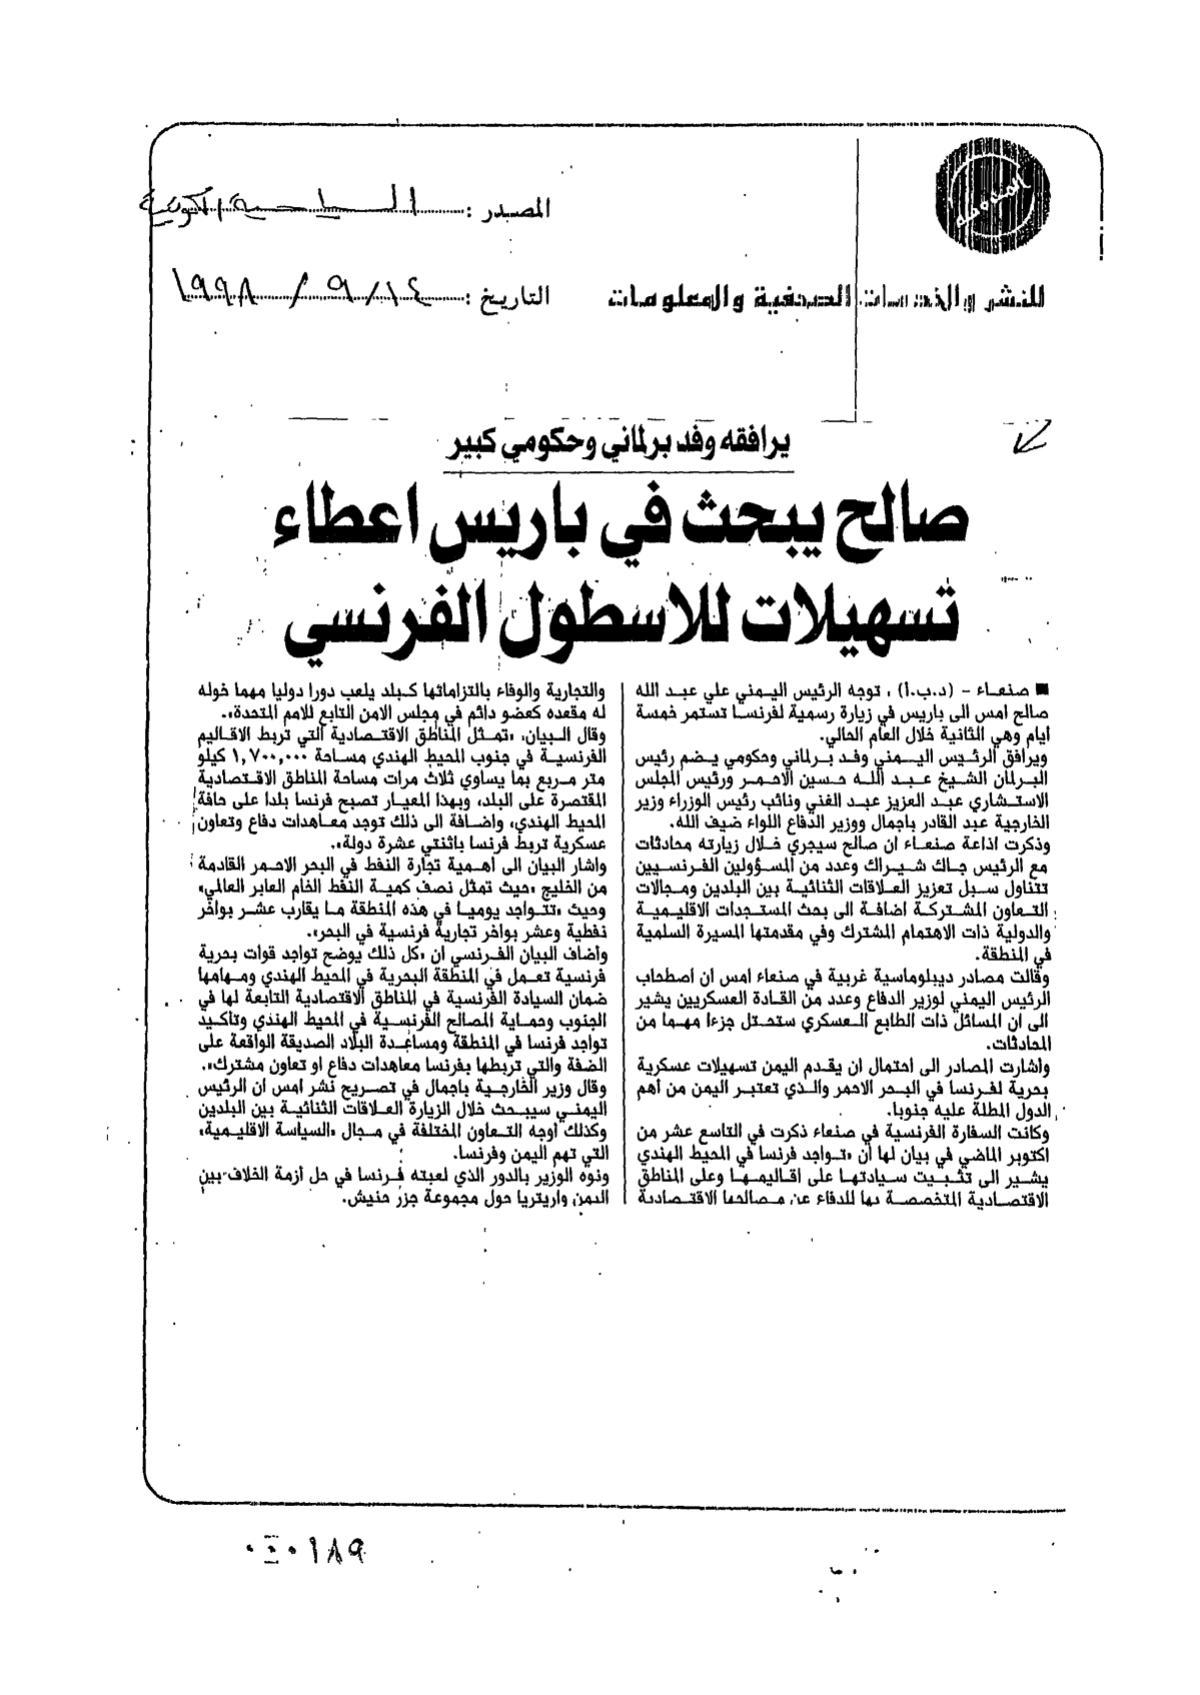 المدمسة
المصدر : السياسية الكويتية
للنشر والخدمات الصحفية والمعلومات
التاريخ : ١٤ / ٩ / ١٩٩٨
يرافقه وفد برلماني وحكومي كبير
صالح يبحث في باريس اعطاء
تسهيلات للاسطول الفرنسي
■ صنعاء - (د.ب.ا) ، توجه الرئيس اليمني علي عبد الله
صالح امس الى باريس في زيارة رسمية لفرنسا تستمر خمسة
ايام وهي الثانية خلال العام الحالي.
ويرافق الرئيس اليمني وفد برلماني وحكومي يضم رئيس
البرلمان الشيخ عبد الله حسين الاحمر ورئيس المجلس
الاستشاري عبد العزيز عبد الغني ونائب رئيس الوزراء وزير
الخارجية عبد القادر باجمال ووزير الدفاع اللواء ضيف الله.
وذكرت اذاعة صنعاء ان صالح سيجري خلال زيارته محادثات
مع الرئيس جاك شيراك وعدد من المسؤولين الفرنسيين
تتناول سبل تعزيز العلاقات الثنائية بين البلدين ومجالات
التعاون المشتركة اضافة الى بحث المستجدات الاقليمية
والدولية ذات الاهتمام المشترك وفي مقدمتها المسيرة السلمية
في المنطقة.
وقالت مصادر ديبلوماسية غربية في صنعاء امس ان اصطحاب
الرئيس اليمني لوزير الدفاع وعدد من القادة العسكريين يشير
الى ان المسائل ذات الطابع العسكري ستحتل جزءا مهما من
المحادثات.
واشارت المصادر الى احتمال ان يقدم اليمن تسهيلات عسكرية
بحرية لفرنسا في البحر الاحمر والذي تعتبر اليمن من أهم
الدول المطلة عليه جنوبا.
وكانت السفارة الفرنسية في صنعاء ذكرت في التاسع عشر من
اكتوبر الماضي في بيان لها أن «تواجد فرنسا في المحيط الهندي
يشير الى تثبيت سيادتها على اقاليمها وعلى المناطق
الاقتصادية المتخصصة بها للدفاع عن مصالحها الاقتصادية
والتجارية والوفاء بالتزاماتها كبلد يلعب دورا دوليا مهما خوله
له مقعده كعضو دائم في مجلس الامن التابع للامم المتحدة».
وقال البيان، «تمثل المناطق الاقتصادية التي تربط الاقاليم
الفرنسية في جنوب المحيط الهندي مساحة ١,٧٠٠,٠٠٠ كيلو
متر مربع بما يساوي ثلاث مرات مساحة المناطق الاقتصادية
المقتصرة على البلد، وبهذا المعيار تصبح فرنسا بلدا على حافة
المحيط الهندي، واضافة الى ذلك توجد معاهدات دفاع وتعاون
عسكرية تربط فرنسا باثنتي عشرة دولة».
واشار البيان الى اهمية تجارة النفط في البحر الاحمر القادمة
من الخليج «حيث تمثل نصف كمية النفط الخام العابر العالمي»
وحيث «تتواجد يوميا في هذه المنطقة ما يقارب عشر بواخر
نفطية وعشر بواخر تجارية فرنسية في البحر».
واضاف البيان الفرنسي ان «كل ذلك يوضح تواجد قوات بحرية
فرنسية تعمل في المنطقة البحرية في المحيط الهندي ومهامها
ضمان السيادة الفرنسية في المناطق الاقتصادية التابعة لها في
الجنوب وحماية المصالح الفرنسية في المحيط الهندي وتاكيد
تواجد فرنسا في المنطقة ومساعدة البلاد الصديقة الواقعة على
الضفة والتي تربطها بفرنسا معاهدات دفاع او تعاون مشترك».
وقال وزير الخارجية باجمال في تصريح نشر امس ان الرئيس
اليمني سيبحث خلال الزيارة العلاقات الثنائية بين البلدين
وكذلك اوجه التعاون المختلفة في مجال «السياسة الاقليمية»
التي تهم اليمن وفرنسا.
ونوه الوزير بالدور الذي لعبته فرنسا في حل ازمة الخلاف بين
اليمن واريتريا حول مجموعة جزر حنيش.
١٨٩